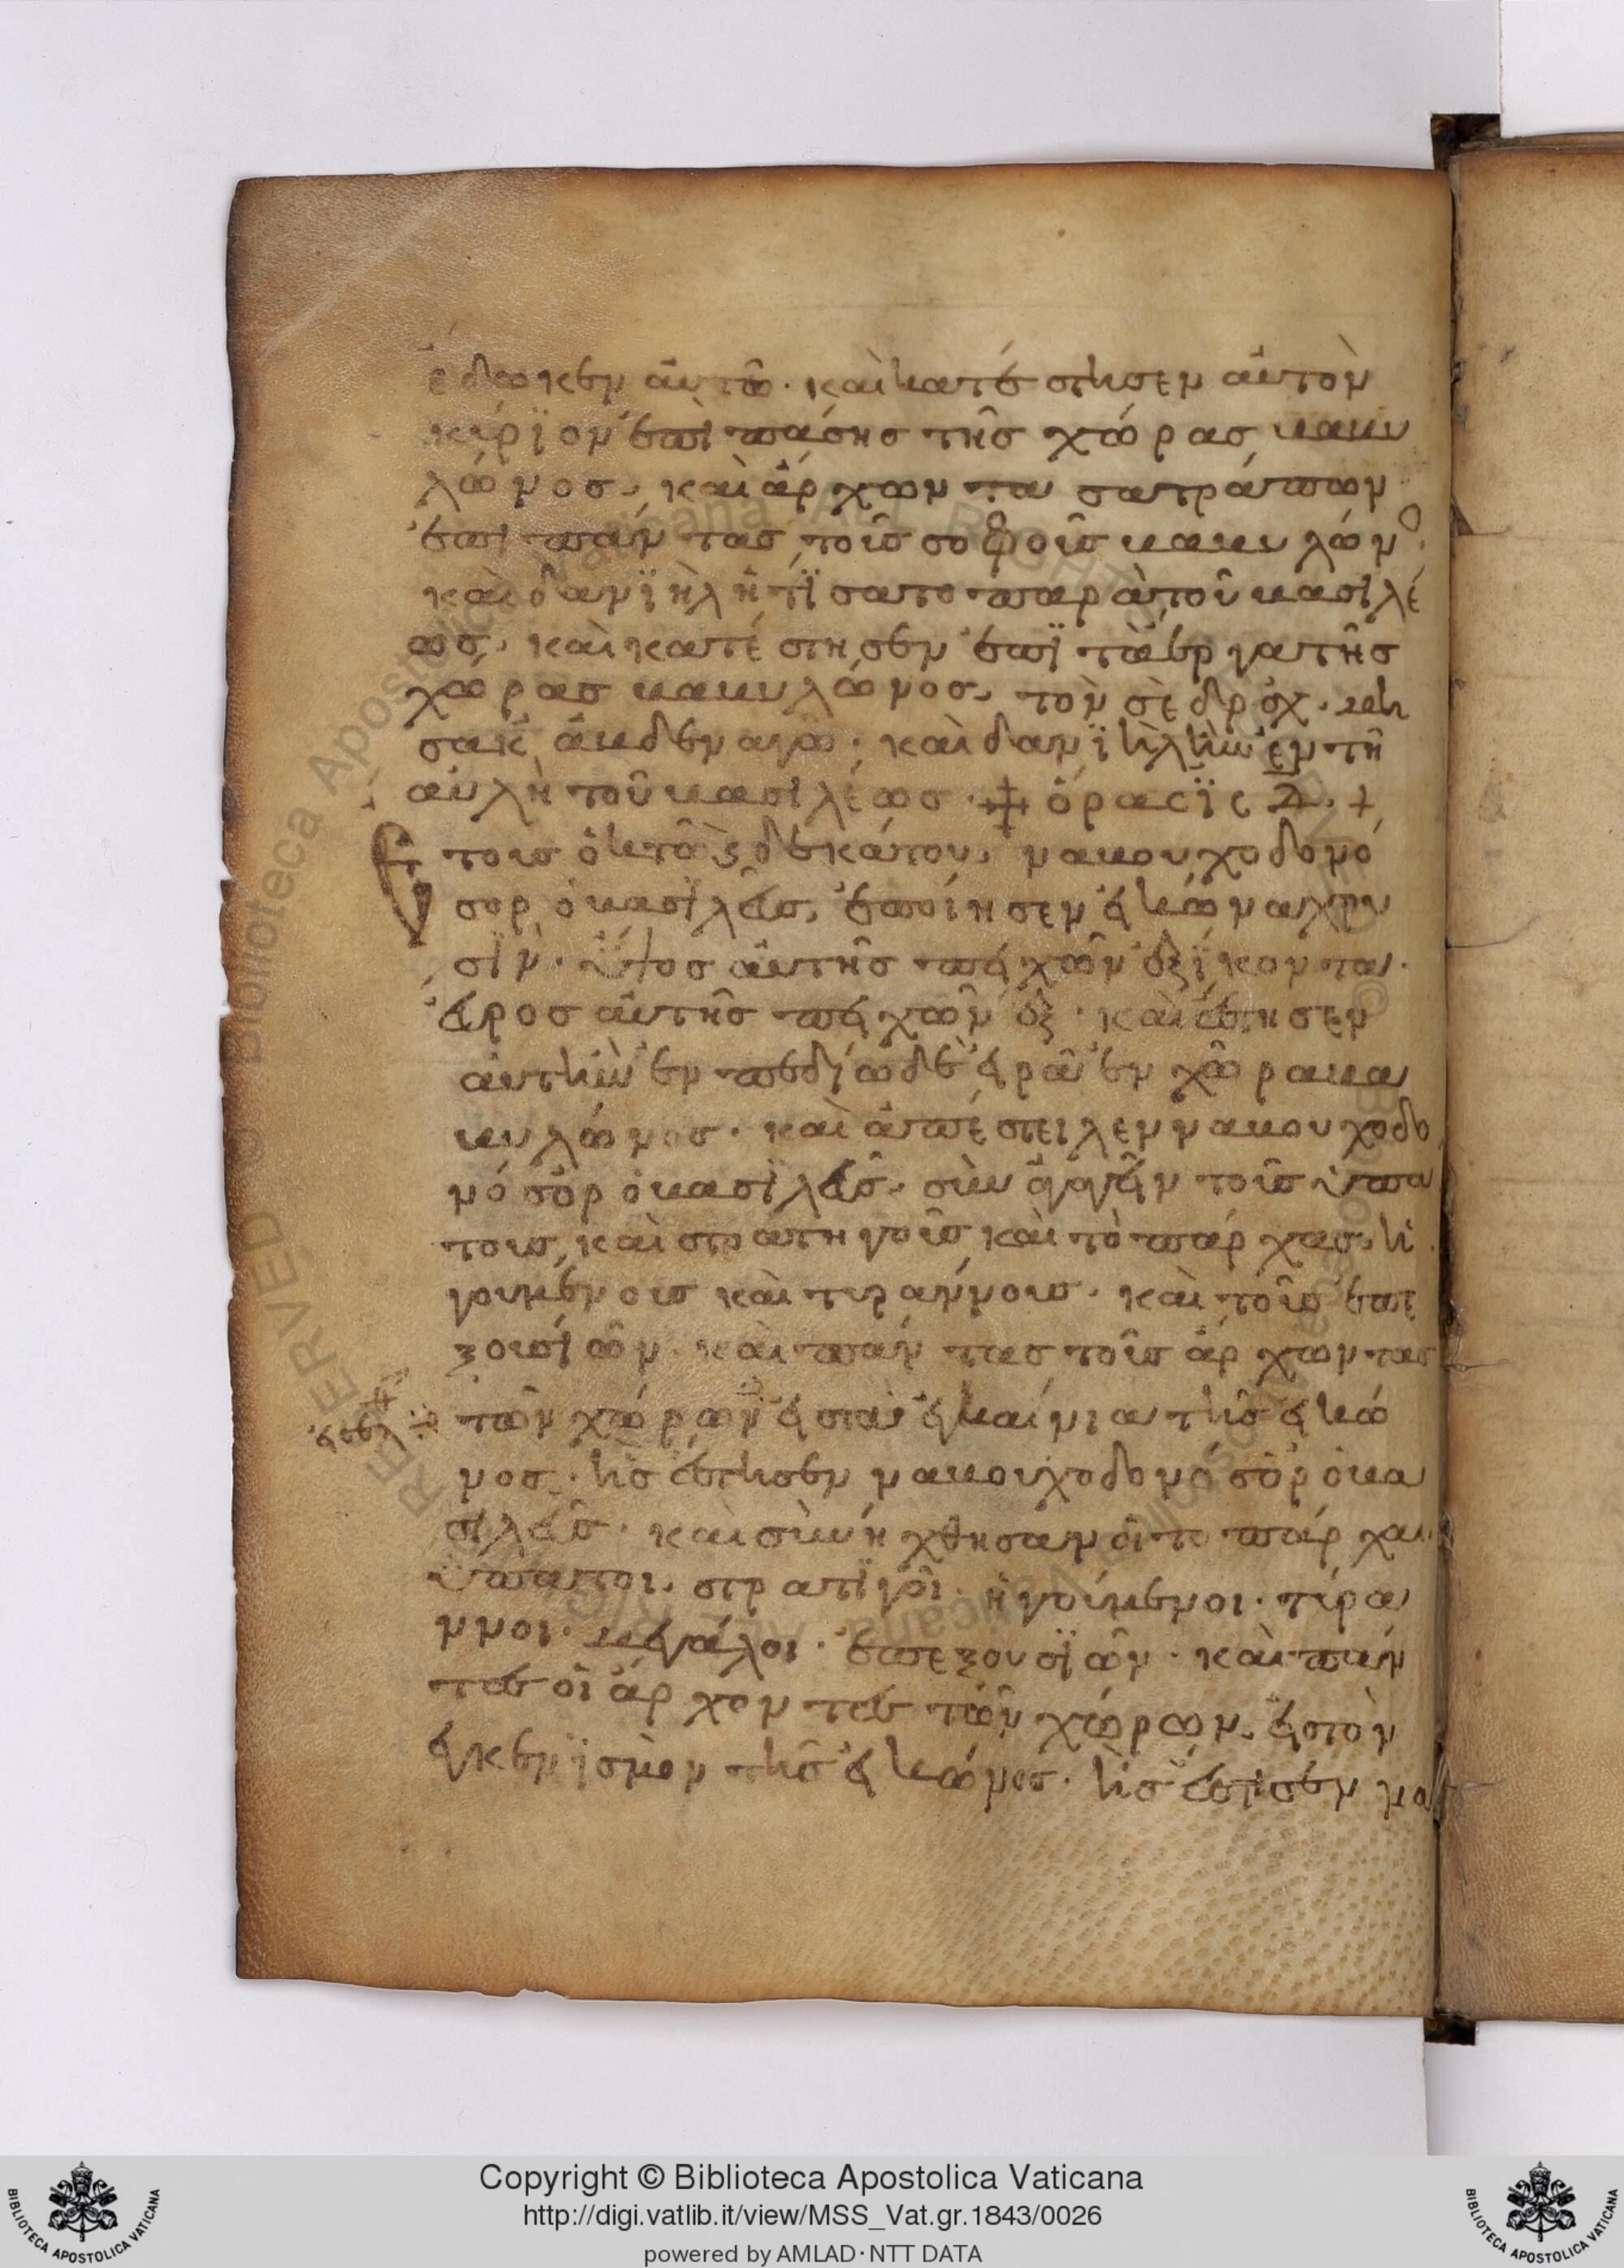 ἔδωκεν αὐτῶ· καὶ κατέστησεν αὐτὸν
κύριον ἐπὶ πάσης τῆς χώρας βαβυ
λῶνος, καὶ ἄρχωντα σατράπων
ἐπὶ πάντας τοὺς σοφοὺς βαβυλών
καὶ δανϊὴλ ἠτΐσατο παρὰ τοῦ βασιλέ
ως, καὶ κατέστησεν ἐπῒ τὰ ἔργα τῆς
χώρας βαβυλῶνος, τὸν σὲδρὰχ· μη
σακ ἀβδεναγῶ· καὶ δανϊὴλ ἦν ἐν τῆ
αὐλὴ τοῦ βασιλέως· ὅρασϊς
Ἔτους ὀκτὸ δεκάτου, ναβουχοδονό
σορ ὁ βασϊλεὺς, ἐποίησεν εἰκώνα χρυ
σῒν· ὕψος αὐτῆς πειχῶν ἑξΐκοντα·
εὖρος αὐτῆς πειχῶν ἓξ· καὶ ἔστησεν
αὐτὴν ἐν πεδίω δεειρᾶ ἐν χῶρα βα
βυλῶνος· καὶ ἀπέστειλεν ναβουχοδο
νόσορ ὁ βασϊλεὺς, συναγαγεῖν τοὺς ὑπα
τους, καὶ στρατηγοὺς καὶ τοπάρχας, ἡ
γουμένους καὶ τυράννους· καὶ τοὺς ἐπε
ξουσιῶν· καὶ πάντας τοὺς ἄρχωντας
τῶν χώρων εἰς τὰ ἐγκαίνια τῆς εἰκώ
νος· ἧς ἔστησεν ναβουχοδονόσορ ὁ βα
σιλεὺς· καὶ συνήχθησαν οἱ τοπάρχαι,
ὕπατοι, στρατϊγοὶ· ἡγούμενοι· τύρα
ννοι· μεγάλοι· ἐπεξουσϊῶν· καὶ πάν
τες οἱ ἄρχοντες τῶν χώρων, εἰς τὸν
ἐγκενϊσμὸν τῆς εἰκώνος· ἧς ἔστισεν να
Copyright © Biblioteca Apostolica Vaticana
http://digi.vatlib.it/view/MSS_Vat.gr.1843/0026
powered by AMLAD·NTT DATA
BIBLIOTECA APOSTOLICA VATICANA
BIBLIOTECA APOSTOLICA VATICANA